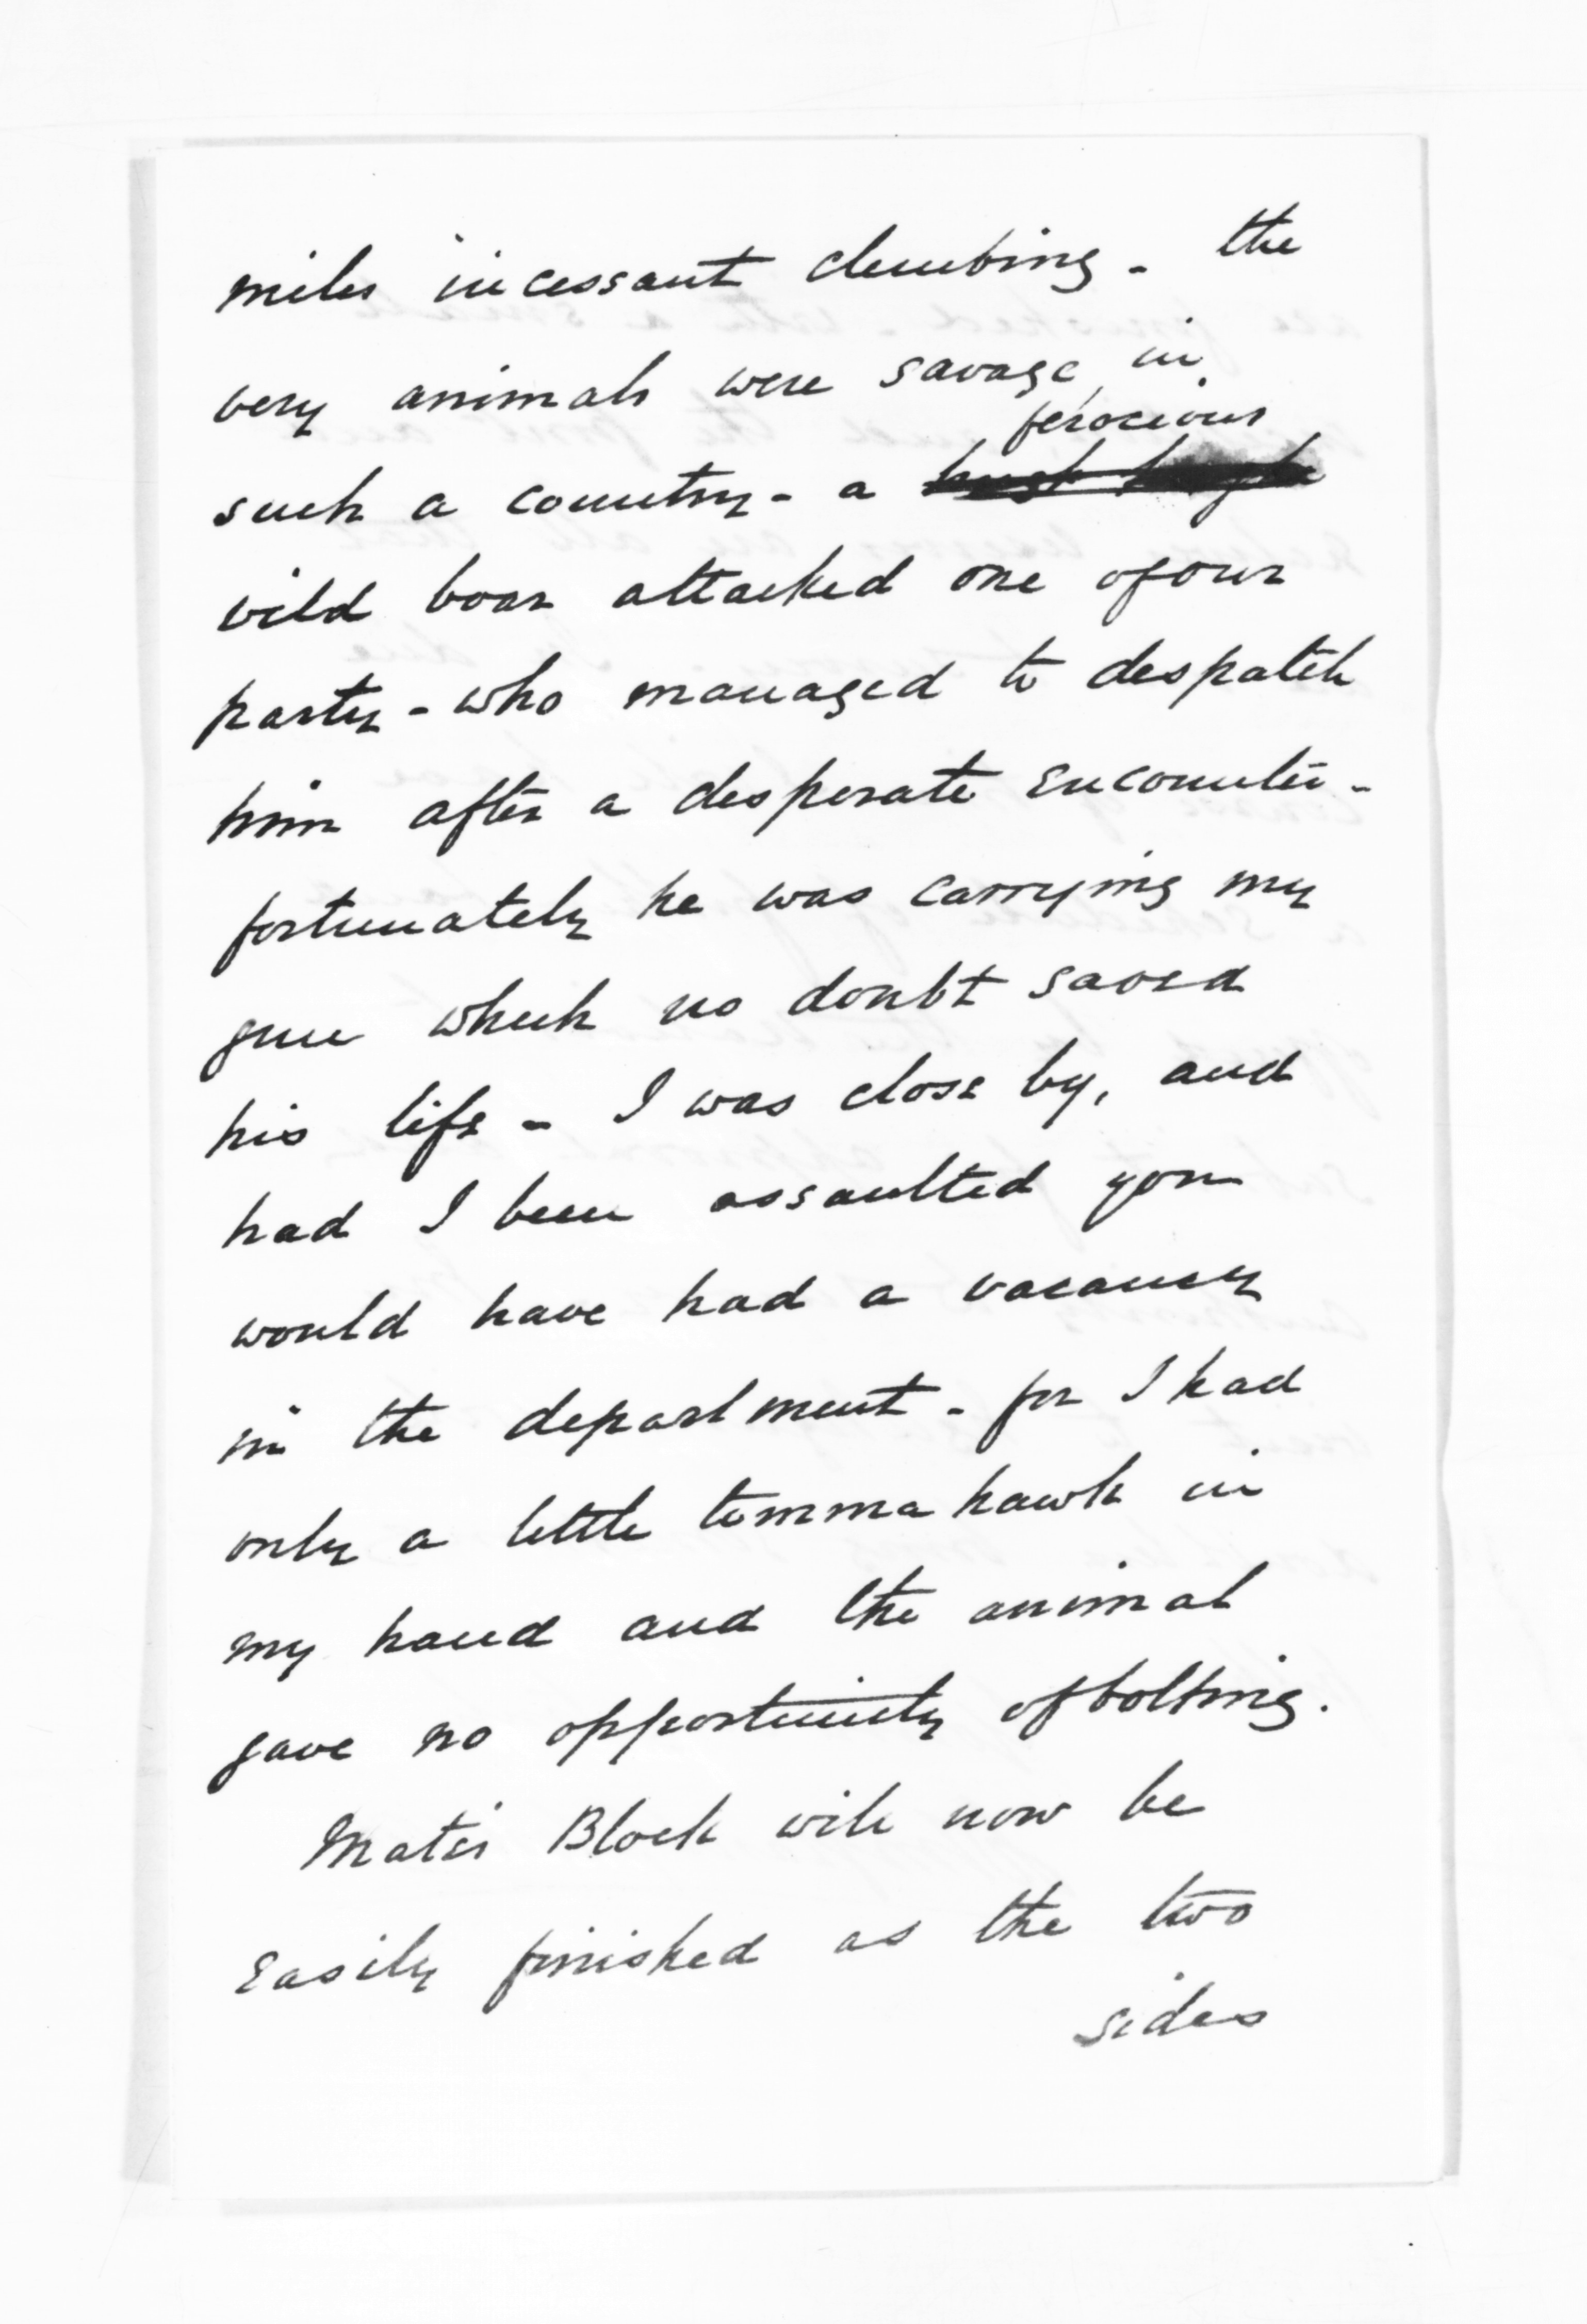 miles incessant climbing - the
very animals were savage in
ferocious
such a country - a
wild boar attacked one of our
party - who managed to despatch
him after a desperate encounter -
fortunately he was carrying my
gun which no doubt saved
his life - I was close by, and
had I been assaulted you
would have had a vacancy
in the department - for I had
only a little tommahawk in
my hand and the animal
gave no opportunity of bolting.
Matai Block will now be
easily finished as the two
sides